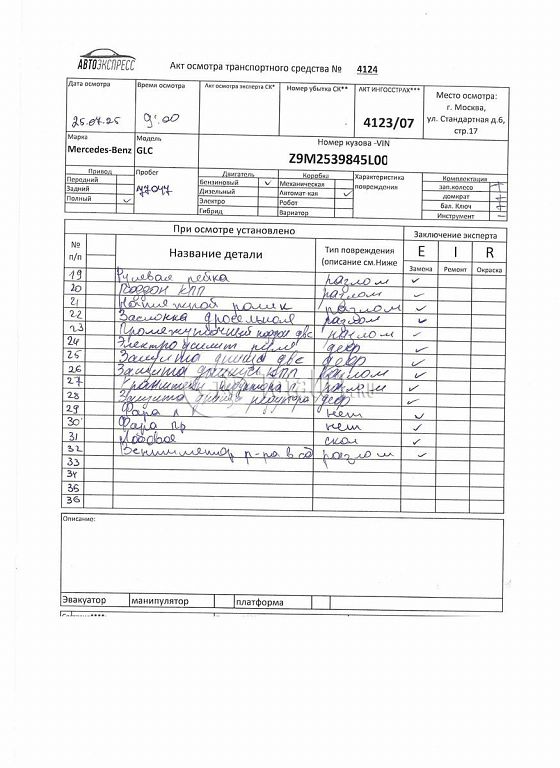 АВТОЭКСПРЕСС
Акт осмотра транспортного средства № 4124
Дата осмотра
Время осмотра
Акт осмотра эксперта СК*
Номер убытка СК**
АКТ ИНГОССТРАХ***
Место осмотра:
г. Москва,
ул. Стандартная д.6,
стр.17
25.07.25
9:00
4123/07
Марка
Модель
Номер кузова -VIN
Mercedes-Benz
GLC
Z9M2539845L00
Привод
Пробег
Двигатель
Коробка
Характеристика
повреждения
Комплектация
Передний
Бензиновый ✓
Механическая
зап.колесо +
Задний
77047
Дизельный
Автомат-кая ✓
домкрат +
Полный ✓
Электро
Робот
бал. Ключ +
Гибрид
Вариатор
Инструмент -
При осмотре установлено
Заключение эксперта
№
п/п
Название детали
Тип повреждения
(описание см.Ниже
E I R
Замена Ремонт Окраска
19 Рулевая рейка разлом ✓
20 Поддон КПП разлом ✓
21 Натяжной ролик разлом ✓
22 Заслонка дросельная разлом ✓
23 Промежуточный поддон двс разлом ✓
24 Электроусилит руля дефр ✓
25 Защита днища двс дефр ✓
26 Защита днища КПП разлом ✓
27 разлом ✓
28 Защита днища дефр ✓
29 Фара л нет ✓
30 Фара пр нет ✓
31 Лобовое скол ✓
32 Вентилятор р-ра в сб разлом ✓
33
34
35
36
Описание:
Эвакуатор
манипулятор
платформа